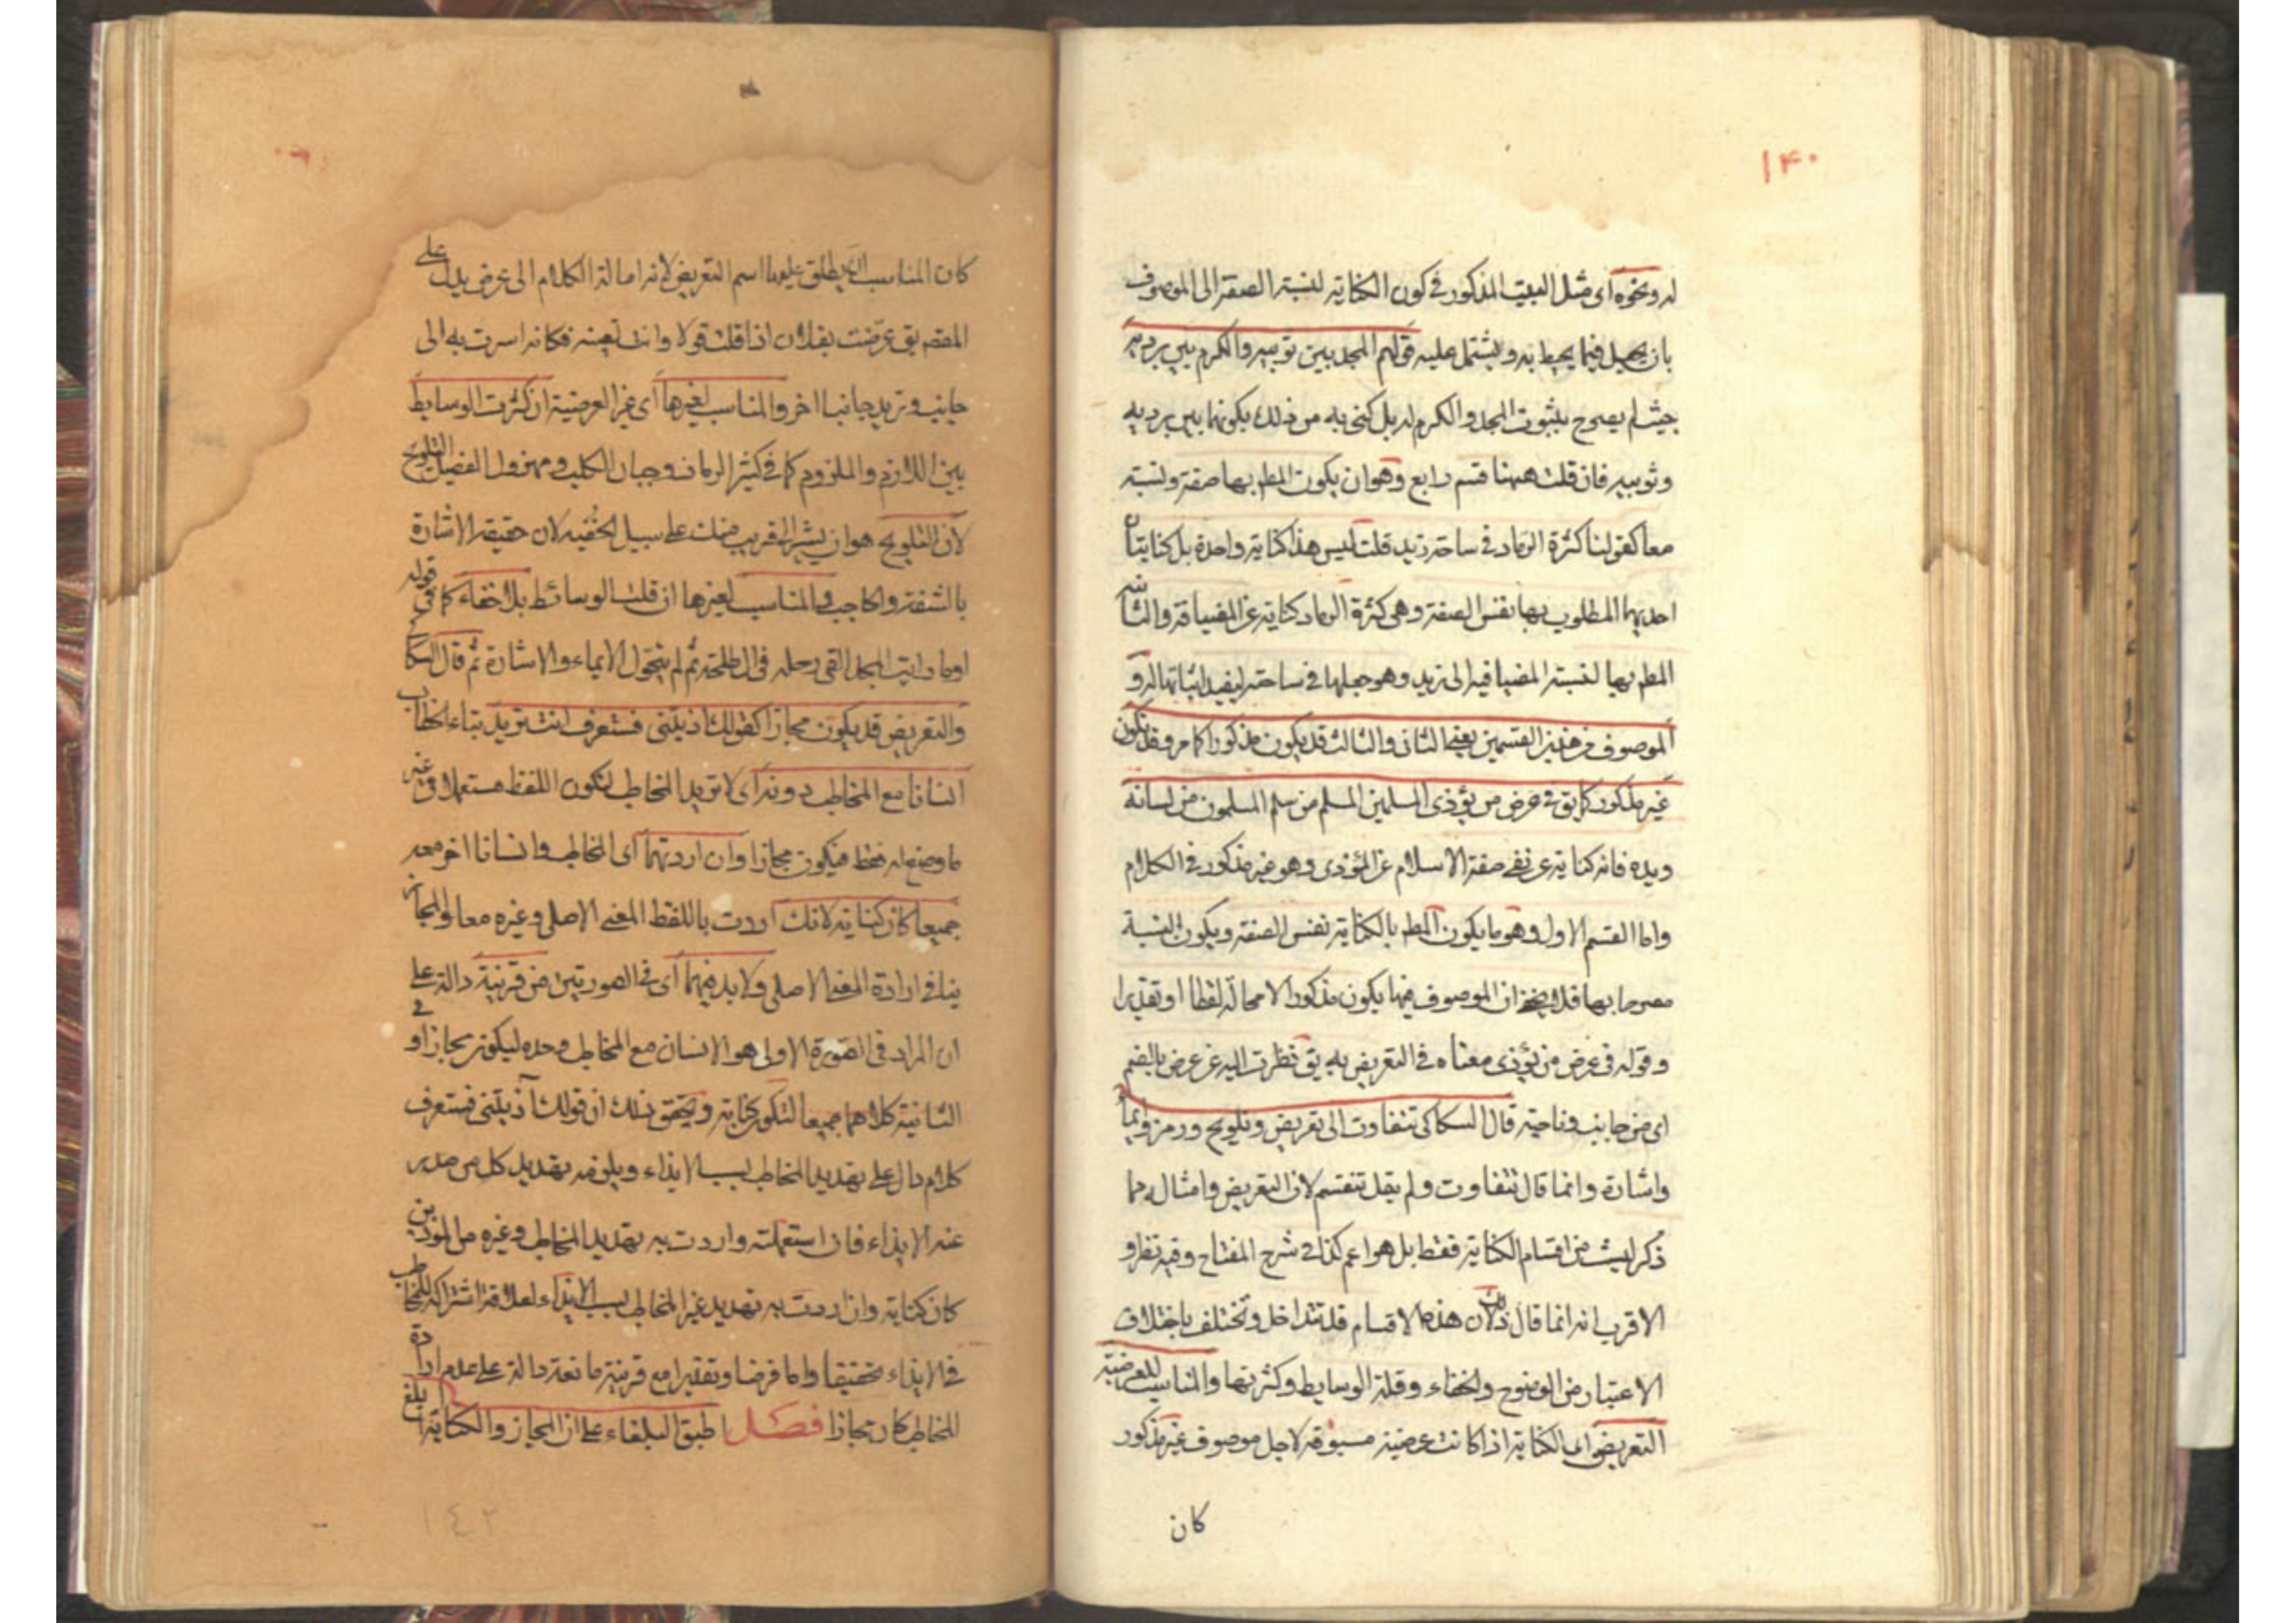 ١٤٠
له ونحوه اى مثل البيت المذكور فى كون الكناية لنسبة الصفة الى الموصوف
بان يجعل فيما يحيط به ويشتمل عليه قولهم المجد بين ثوبيه والكرم بين برديه
حيث لم يصرح بثبوت المجد والكرم له بل كنى به من ذلك بكونهما بين برديه
وثوبيه فان قلت ههنا قسم رابع وهو ان يكون المط بها صفة ونسبة
معا كقولنا كثرة الرماد فى ساحة زيد قلت ليس هذا كناية واحدة بل كنايتان
احديهما المطلوب بها نفس الصفة وهى كثرة الرماد كناية عن المضيافة والثانية
المط بها نسبة المضيافية الى زيد وهو جعلها فى ساحته ليفيد اثباتها له و
الموصوف فى هذين القسمين يعنى الثانى والثالث قد يكون مذكورا كما مر وقد يكون
غير مذكور كما يق فى عرض من يؤذى المسلمين المسلم من سلم المسلمون من لسانه
ويده فانه كناية عن نفى صفة الاسلام عن المؤذى وهو غير مذكور فى الكلام
واما القسم الاول وهو ما يكون المط بالكناية نفس الصفة ويكون النسبة
مصرحا بها فلا يخفى ان الموصوف فيها يكون مذكورا لا محالة لفظا او تقديرا
وقوله فى عرض من يؤذى معناه فى التعريض به يق نظرت اليه عن عرض بالضم
اى من جانب وناحية قال السكاكى تتفاوت الى تعريض وتلويح ورمز وايماء
واشارة وانما قال تتفاوت ولم يقل تنقسم لان التعريض وامثاله مما
ذكر ليست من اقسام الكناية فقط بل هو اعم كذا فى شرح المفتاح وفيه نظر و
الاقرب انه انما قال ذلك لان هذه الاقسام قد تتداخل وتختلف باختلاف
الاعتبار من الوضوح والخفاء وقلة الوسايط وكثرتها والمناسب للعرضية
التعريض اى الكناية اذا كانت عرضية مسوقة لاجل موصوف غير مذكور
كان
كان المناسب ان يطلق عليها اسم التعريض لانه امالة الكلام الى عرض يدل على
المقصم يق عرضت بفلان اذا قلت قولا وانت تعينه فكانه اسرت به الى
جانب وتريد جانبا اخر والمناسب لغيرها اى غير العرضية ان كثرت الوسايط
بين اللازم والملزوم كما فى كثير الرماد وجبان الكلب ومهزول الفصيل التلويح
لان التلويح هو ان يشير الى قريب منك على سبيل الخفية لان حقيقة الاشارة
بالشفة والحاجب والمناسب لغيرها ان قلت الوسائط بلا خفاء كما فى قوله
اوما رايت المجد القى رحله فى ال طلحة ثم لم يتحول الايماء والاشارة ثم قال السكا
والتعريض قد يكون مجازا كقولك اذيتنى فستعرف انت تريد بتاء الخطاب
انسانا مع المخاطب دونه اى لا تريد المخاطب ليكون اللفظ مستعملا فى غير
ما وضع له فقط فيكون مجازا وان اردتهما اى المخاطب وانسانا اخر معه
جميعا كان كناية لانك اردت باللفظ المعنى الاصلى وغيره معا والمجاز
ينافى ارادة المعنى الاصلى ولا بد فيهما اى فى الصورتين من قرينة دالة على
ان المراد فى الصورة الاولى هو الانسان مع المخاطب وحده ليكون مجازا و فى
الثانية كلاهما جميعا لتكون كناية وتحقق ذلك ان قولك آذيتنى فستعرف
كلام دال على تهديد المخاطب بسبب الايذاء ويلزمه تهديد كل من صدر
عنه الايذاء فان استعملته واردت به تهديد المخاطب وغيره من الموذين
كان كناية وان اردت به تهديد غير المخاطب بسبب الايذاء لعلاقة اشتراكه للمخاطب
فى الايذاء تحقيقا واما فرضا وتقديرا مع قرينة مانعة دالة على عدم ارادة
المخاطب كان مجازا فصل اطبق البلغاء على ان المجاز والكناية ابلغ
١٤٢